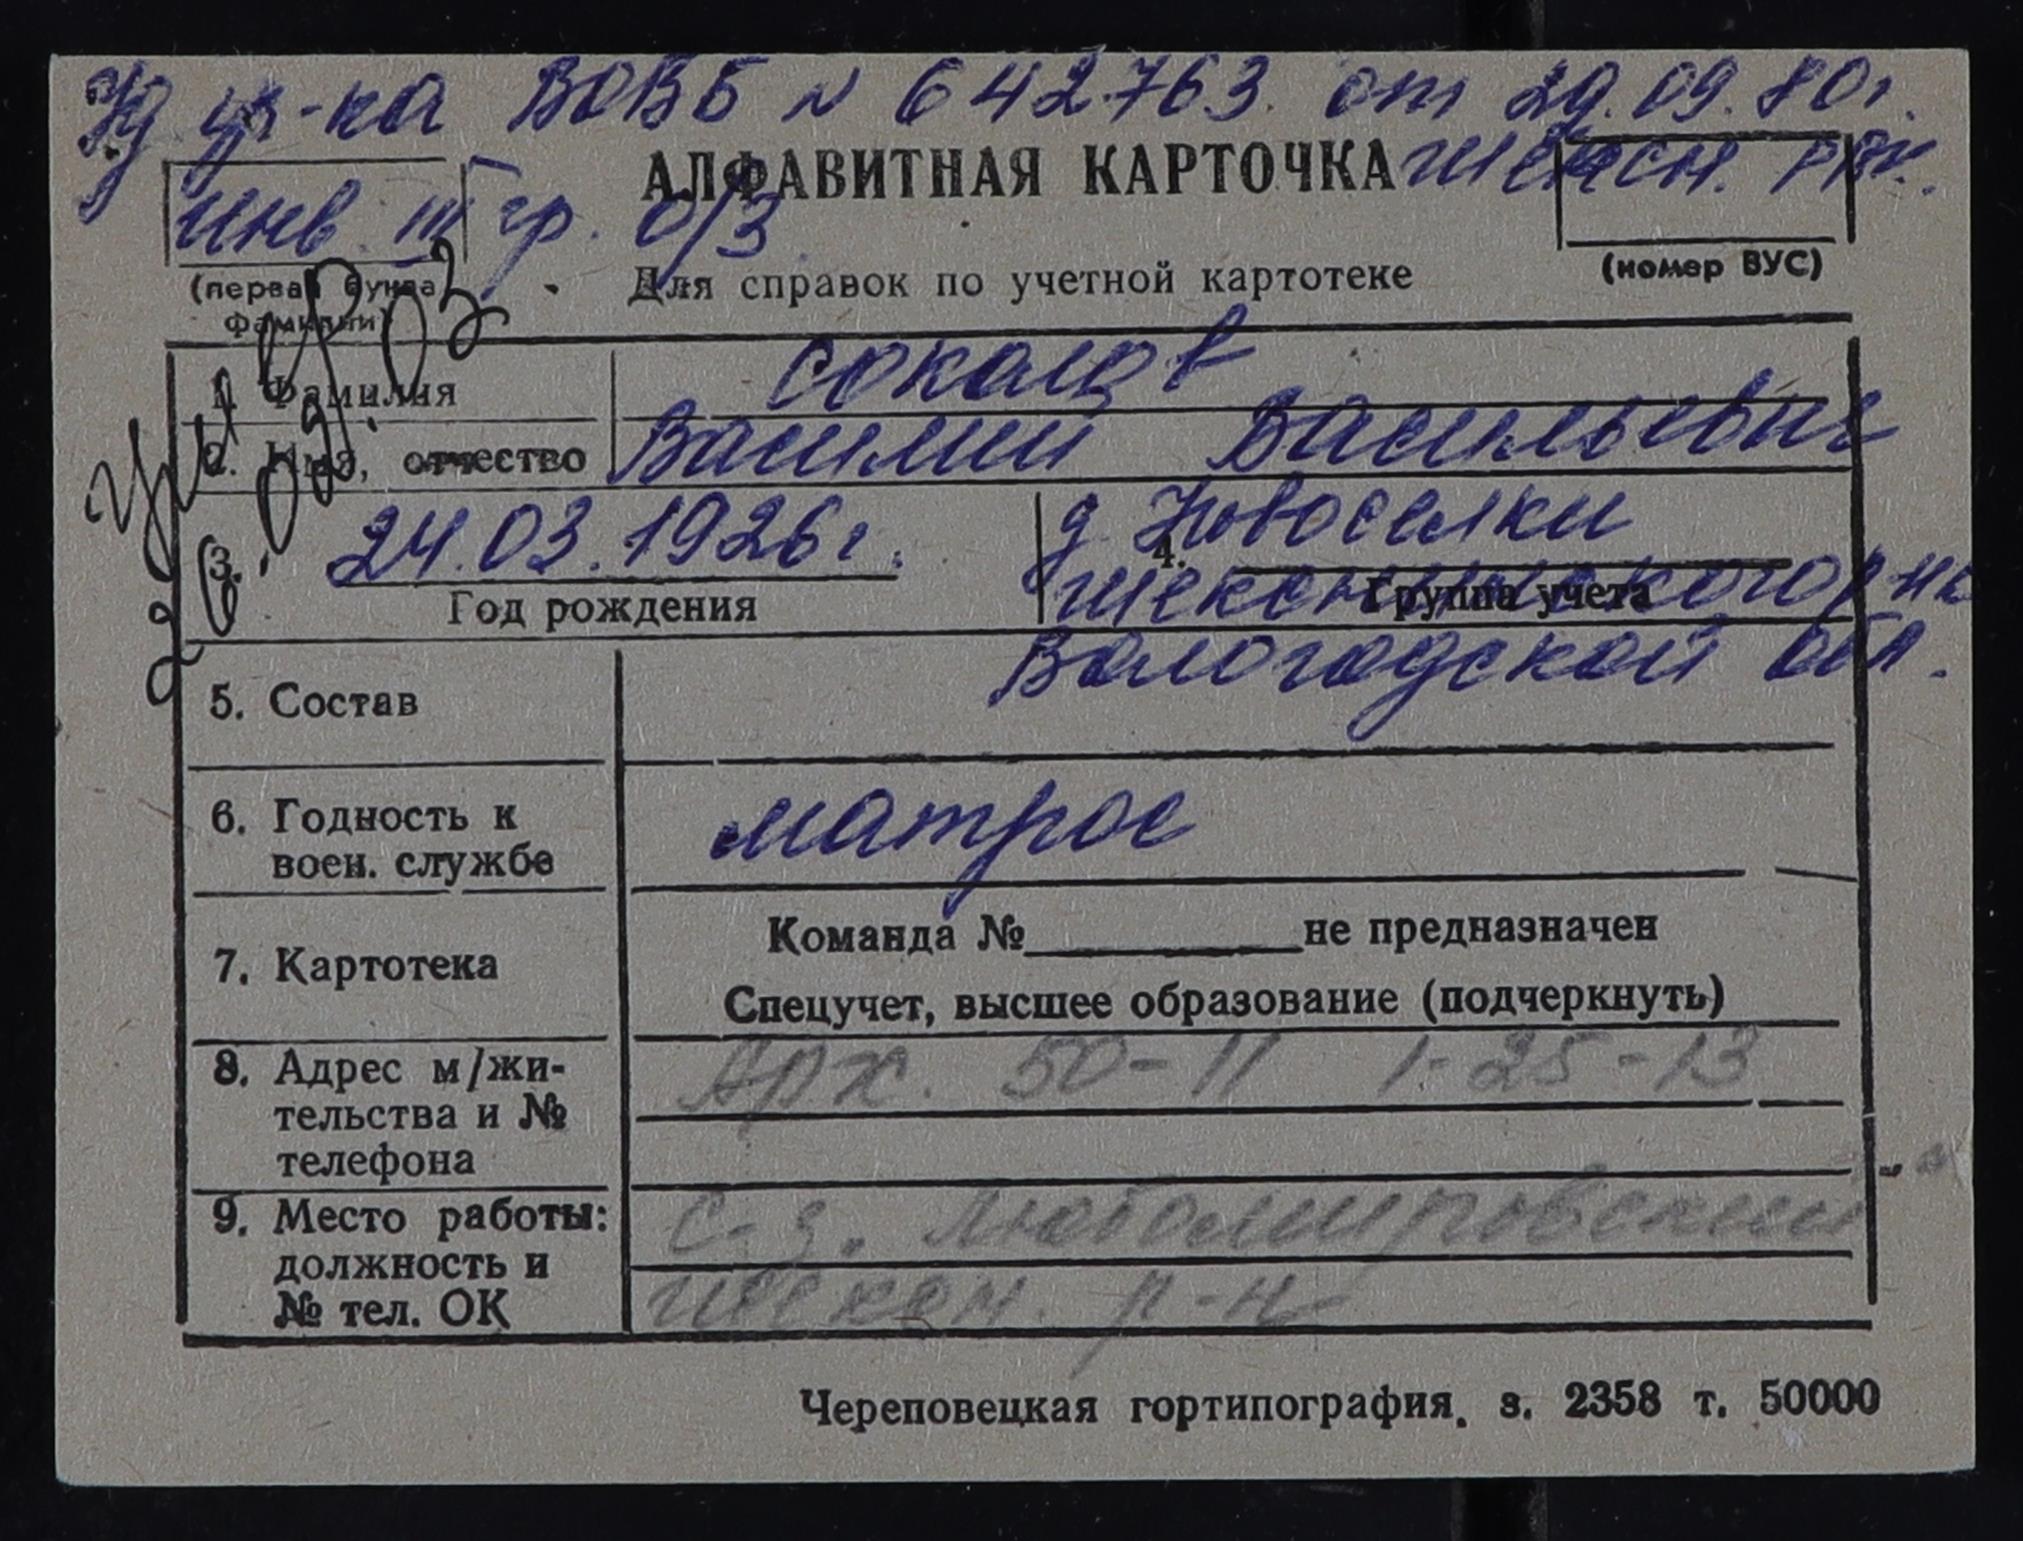 Уд уч-ка ВОВ Б № 642763 от 29.09.80г.
АЛФАВИТНАЯ КАРТОЧКА Шексн. РВК.
инв. III гр. о/з
(первая буква фамилии)
(номер ВУС)
Для справок по учетной картотеке
1. Фамилия Соколов
2. Имя, отчество Василий Васильевич
3. 24.03.1926г. д. Новоселки
Год рождения
4. Группа учета
Шекснинского р-на
Вологодской обл.
5. Состав
6. Годность к воен. службе матрос
7. Картотека
Команда № не предназначен
Спецучет, высшее образование (подчеркнуть)
8. Адрес м/жи-
тельства и №
телефона
Арх. 50-11 1-25-13
9. Место работы:
должность и
№ тел. ОК
с-з. Любомировский
Шексн. р-н
Череповецкая гортипография. з. 2358 т. 50000